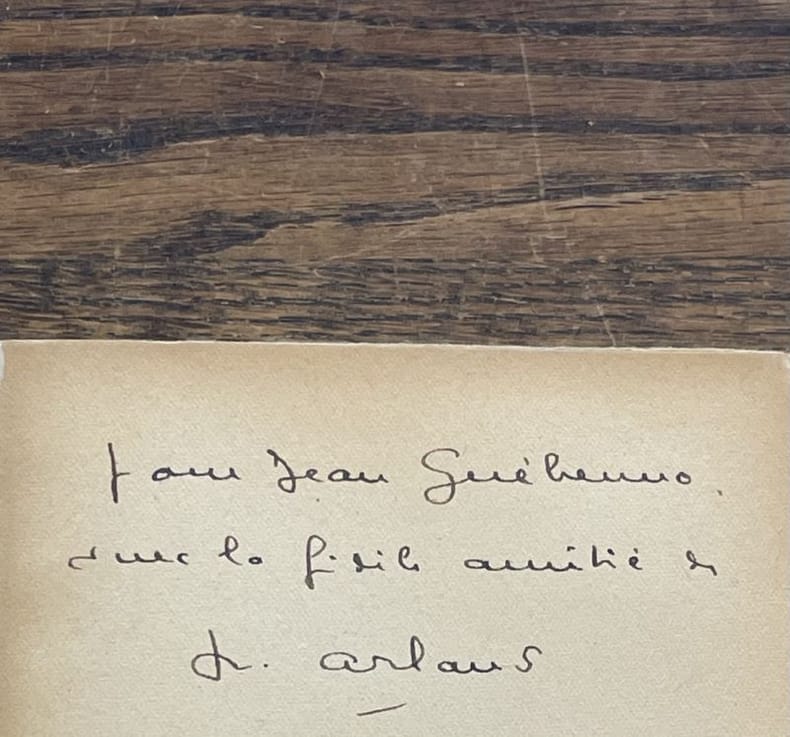 pour Jean Guéhenno.
avec la fidèle amitié de
M. Arland